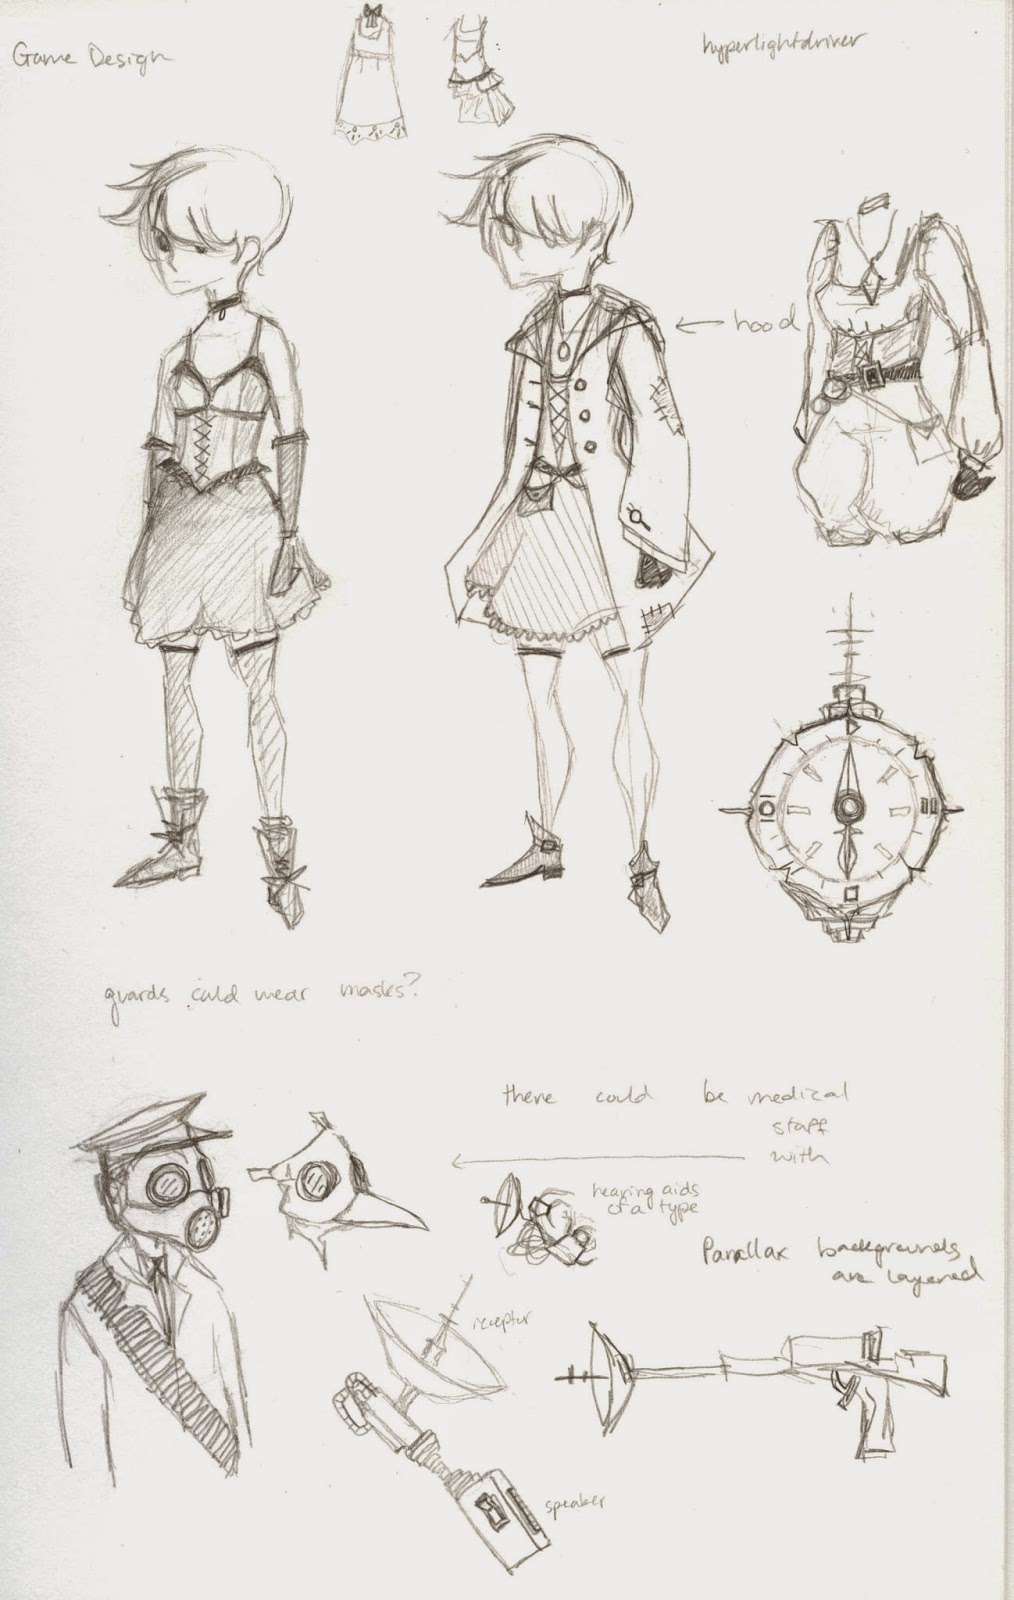 Game Design
hyperlightdriver
hood
guards could wear masks?
there could be medical
staff
with
hearing aids
of a type
Parallax backgrounds
are layered
receptor
speaker